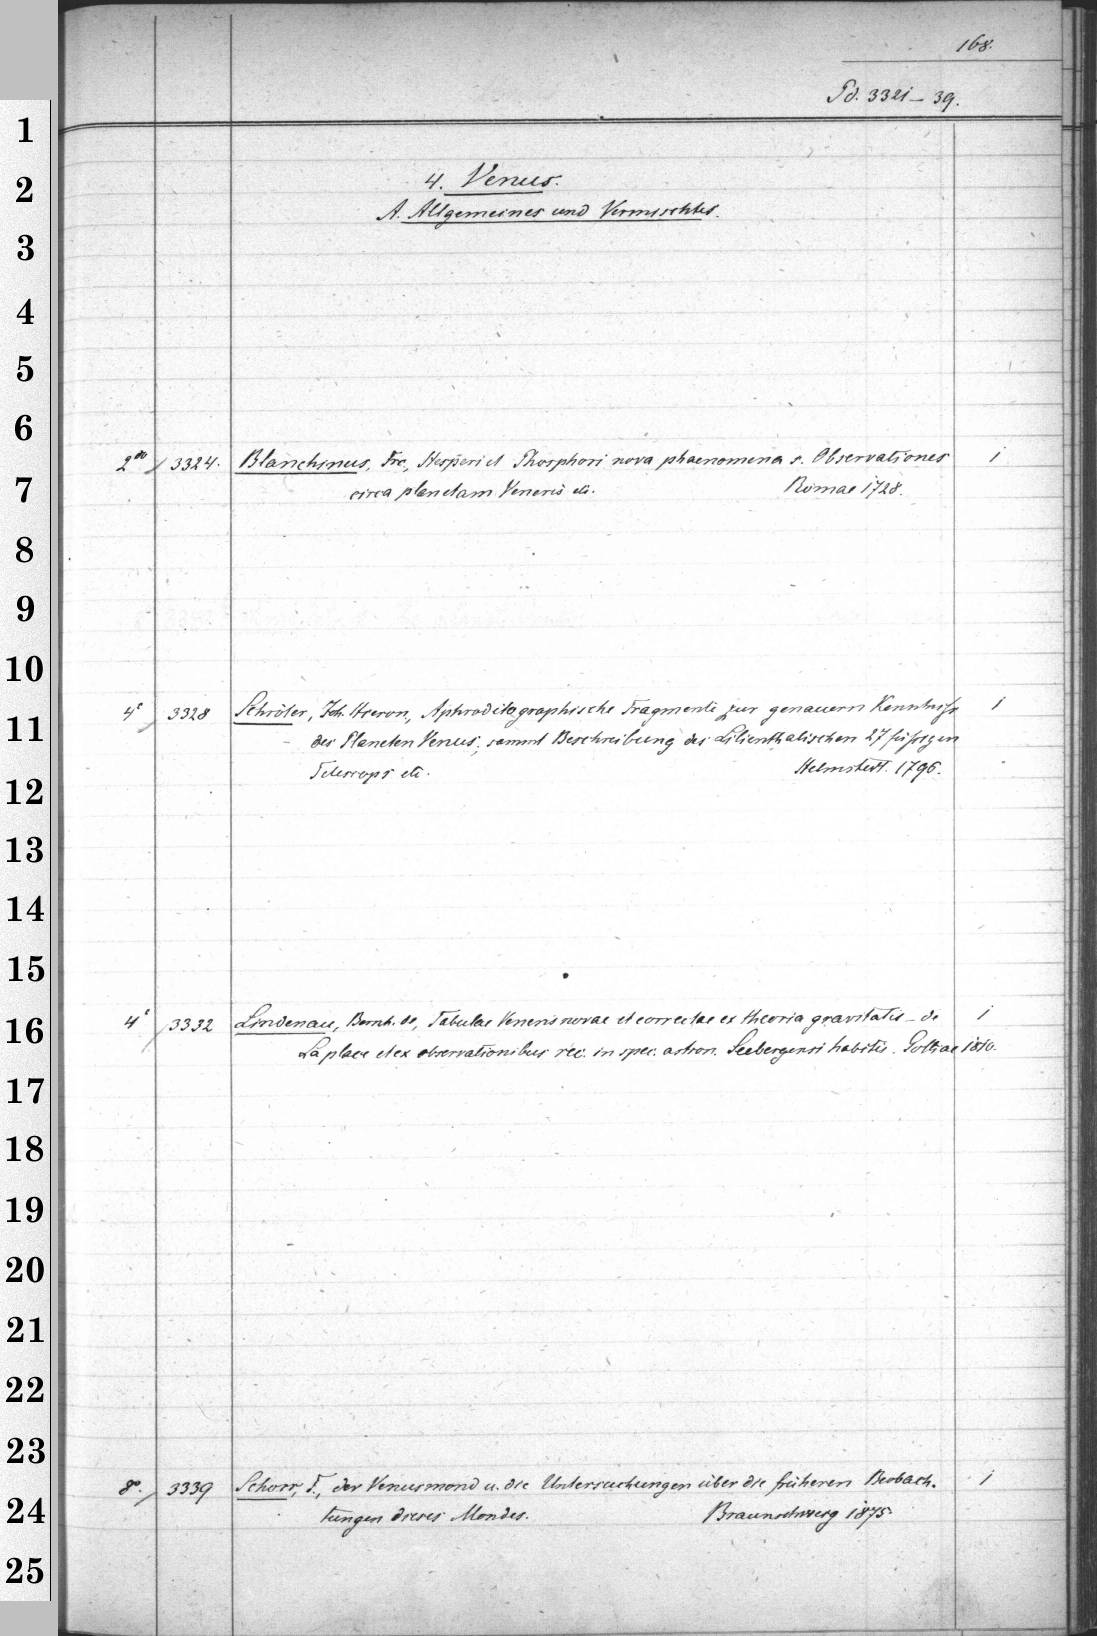 168.
Pd. 3321-39.
4. Venus.
A. Allgemeines und Vermischtes.
2° / 3324. Blanchinus, Frc, Hesperi et Phosphori nova phaenomena s. Observationes 1
circa planetam Veneris etc. Romae 1728.
4° / 3328 Schröter, Joh. Hieron, Aphroditographische Fragmente zur genauern Kenntniss 1
des Planeten Venus, sammt Beschreibung des Lilienthalischen 27 füssigen
Telescops etc. Helmstedt. 1796.
4° / 3332 Lindenau, Bernh. de, Tabulae Veneris novae et correctae ex theoria gravitatis - de 1
La place et ex observationibus rec. in spec. astron. Seebergensi habitis. Gothae 1810.
8° / 3339 Schorr, F., der Venusmond u. die Untersuchungen über die früheren Beobach- 1
tungen dieses Mondes. Braunschweig 1875.
1
2
3
4
5
6
7
8
9
10
11
12
13
14
15
16
17
18
19
20
21
22
23
24
25